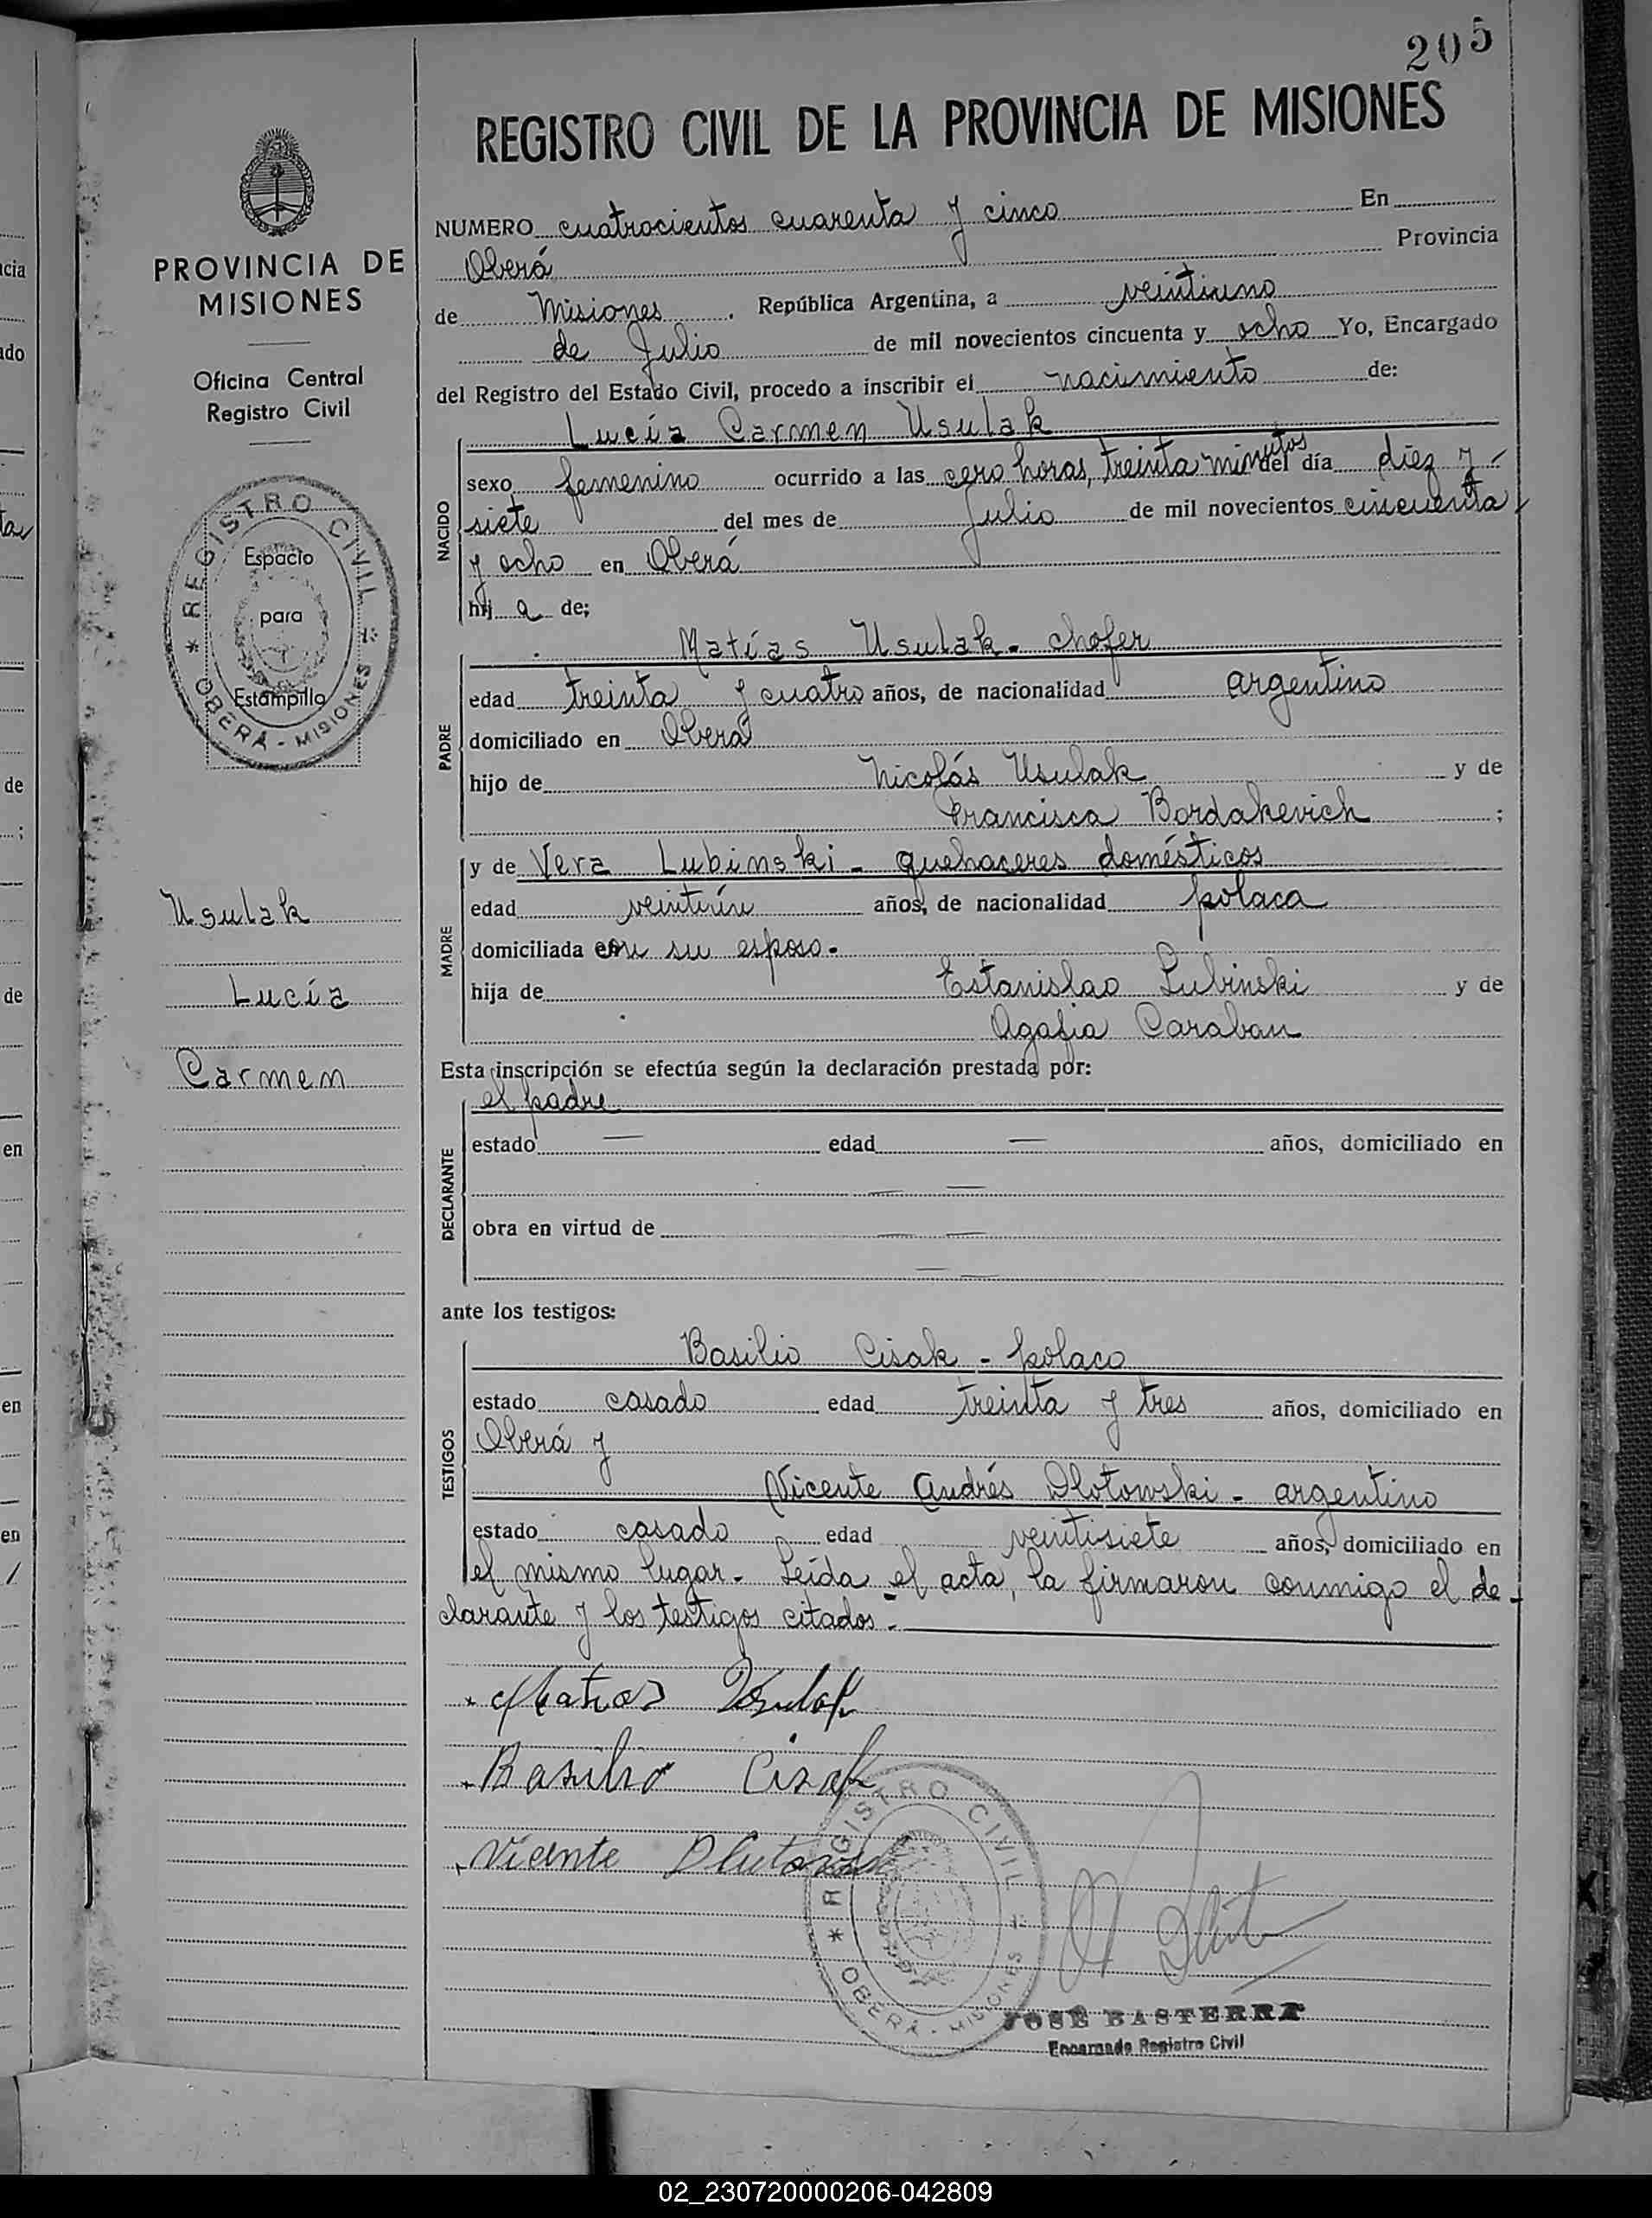 205
REGISTRO CIVIL DE LA PROVINCIA DE MISIONES
PROVINCIA DE
MISIONES
Oficina Central
Registro Civil
REGISTRO CIVIL
Espacio
para
Estampilla
* OBERÁ - MISIONES
Usulak
Lucía
Carmen
NUMERO cuatrocientos cuarenta y cinco En
Oberá Provincia
de Misiones. República Argentina, a veintiuno
de Julio de mil novecientos cincuenta y ocho Yo, Encargado
del Registro del Estado Civil, procedo a inscribir el nacimiento de:
NACIDO
Lucía Carmen Usulak
sexo femenino ocurrido a las cero horas, treinta minutos del día diez y
siete del mes de Julio de mil novecientos cincuenta
y ocho en Oberá
hij a de;
PADRE
Matías Usulak - chofer
edad treinta y cuatro años, de nacionalidad argentino
domiciliado en Oberá
hijo de Nicolás Usulak y de
Francisca Bordakevich ;
MADRE
y de Vera Lubinski - quehaceres domésticos
edad veintiún años, de nacionalidad polaca
domiciliada con su esposo.
hija de Estanislao Lubinski y de
Agafia Caraban
Esta inscripción se efectúa según la declaración prestada por:
DECLARANTE
el padre
estado — edad — años, domiciliado en
— —
obra en virtud de — —
— —
ante los testigos:
TESTIGOS
Basilio Cisak - polaco
estado casado edad treinta y tres años, domiciliado en
Oberá y
Vicente Andrés Dlotowski - argentino
estado casado edad veintisiete años, domiciliado en
el mismo lugar. Leída el acta, la firmaron conmigo el de-
clarante y los testigos citados.-
Matias Usulak
Basilio Cisak
Vicente
REGISTRO CIVIL
* OBERÁ - MISIONES
JOSÉ BASTERRA
Encargado Registro Civil
02_230720000206-042809